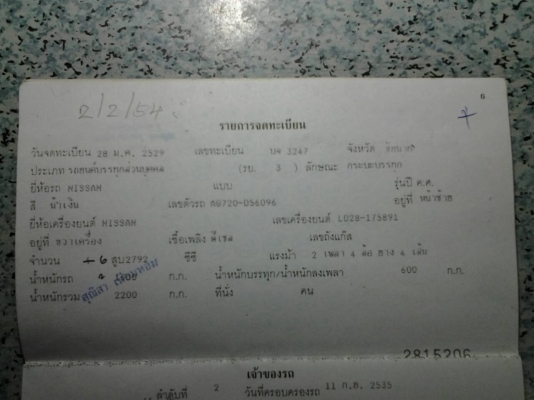 6
2/2/54
รายการจดทะเบียน
วันจดทะเบียน 28 ม.ค. 2529 เลขทะเบียน 3247 จังหวัด
ประเภท รถยนต์บรรทุกส่วนบุคคล (รย. 3 ) ลักษณะ กระบะบรรทุก
ยี่ห้อรถ NISSAN แบบ รุ่นปี ค.ศ.
สี น้ำเงิน เลขตัวรถ RG720-056096 อยู่ที่ หน้าซ้าย
ยี่ห้อเครื่องยนต์ NISSAN เลขเครื่องยนต์ LD28-175891
อยู่ที่ ขวาเครื่อง เชื้อเพลิง ดีเซล เลขถังแก๊ส
จำนวน 6 สูบ2792 ซีซี แรงม้า 2 เพลา 4 ล้อ ยาง 4 เส้น
น้ำหนักรถ ก.ก. น้ำหนักบรรทุก/น้ำหนักลงเพลา 600 ก.ก.
น้ำหนักรวม 2200 ก.ก. ที่นั่ง คน
2815206
เจ้าของรถ
ลำดับที่ 2 วันที่ครอบครองรถ 11 ก.ย. 2535